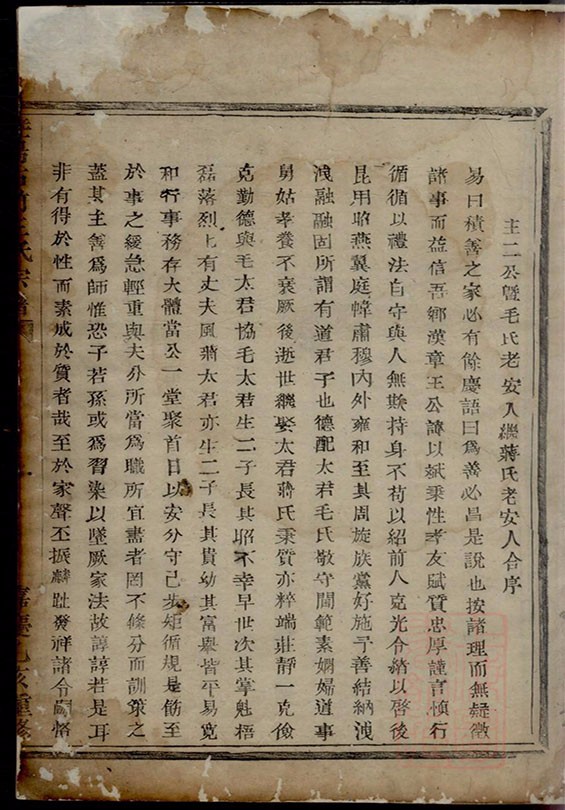 圭二公曁毛氏老安人繼蔣氏老安人合序
易曰積善之家必有餘慶語曰爲善必昌是說也按諸理而無疑徵
諸事而益信吾鄉漢章王公諱以斌秉性孝友賦質忠厚謹言愼行
循循以禮法自守與人無欺持身不苟以紹前人克光令緒以啓後
昆用昭燕翼庭幃肅穆內外雍和至其周旋族黨好施予善結納洩
洩融融固所謂有道君子也德配太君毛氏敬守閫範素嫻婦道事
舅姑孝養不衰厥後逝世繼娶太君蔣氏秉質亦粹端莊靜一克儉
克勤德與毛太君協毛太君生二子長其昭不幸早世次其掌魁梧
磊落烈烈有丈夫風蔣太君亦生二子長其貴幼其富舉皆平易寬
和行事務存大體當公一堂聚首日以安分守己步矩循規是飭至
於事之緩急輕重與夫分所當爲職所宜盡者罔不條分而訓策之
蓋其主善爲師惟恐子若孫或爲習染以墜厥家法故諄諄若是耳
非有得於性而素成於質者哉至於家聲丕振麟趾發祥諸令嗣恪
氏宗譜
乙亥重修